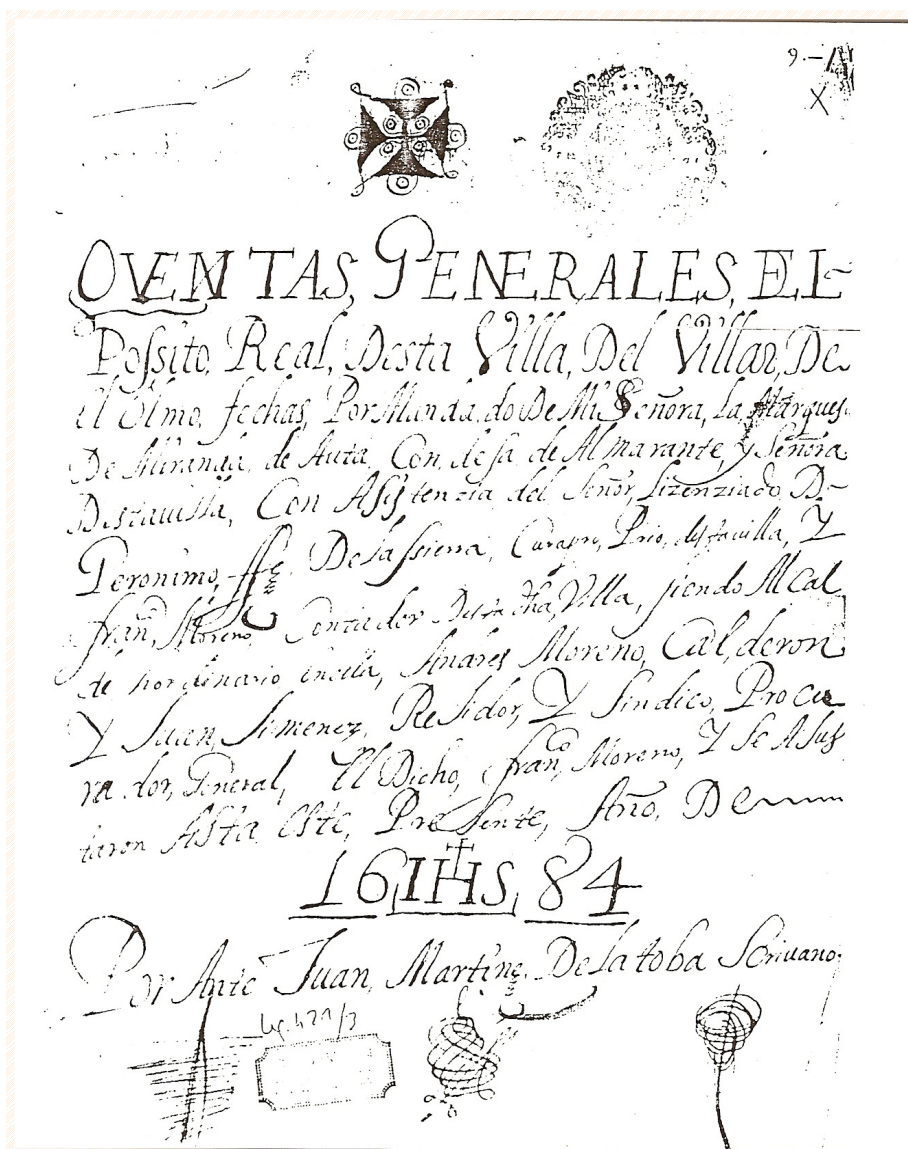 9.-
X
QVENTAS, GENERALES, DEL
Possito, Real, Desta Villa, Del Villar, De
El Olmo, fechas, Por Manda, do De Mi Señora, La Marques
De Miranda, de Auta, Con, desa, de Almarante, y Señora
Destauilla, Con Asistenzia del Señor, Lizenziado, D
Geronimo, De la ssierra, Cura prº, Prio, destauilla, Y
franº, Moreno, Contador Desta dha, Villa, siendo Alcal
de hordinario enella, Andres Moreno, Cal, deron
Y Juan, Simenez, Residor, Y Sindico, Procu
ra dor, General, El Dicho, franº, Moreno, Y Se AJus
taron Asta este, Presente, Año, De
16, IHS, 84
Por Ante Juan, Martinz, De La toba Scriuano
Lg. 421/3